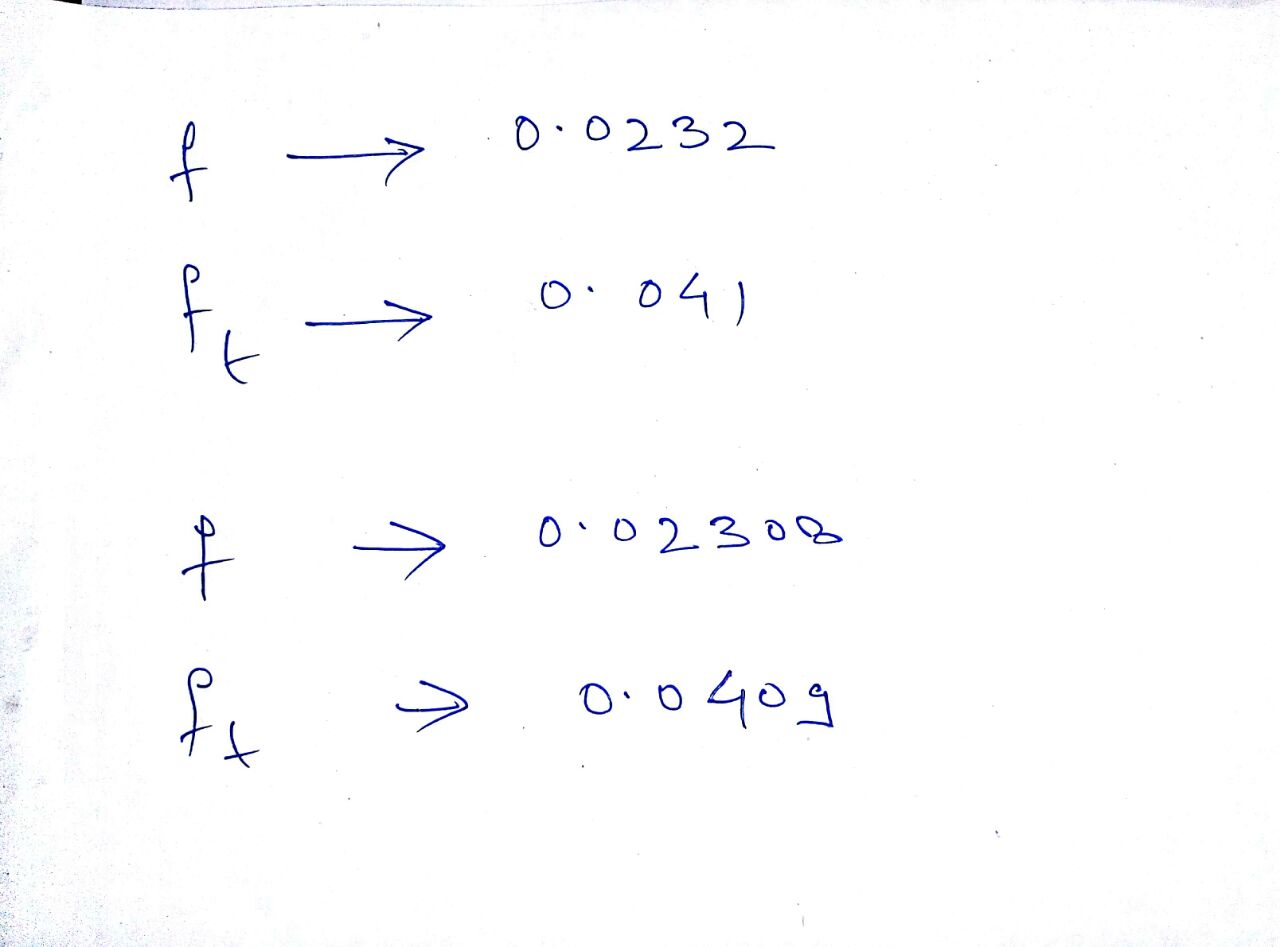 f → 0.0232
f_t → 0.041
f → 0.02308
f_t → 0.0409